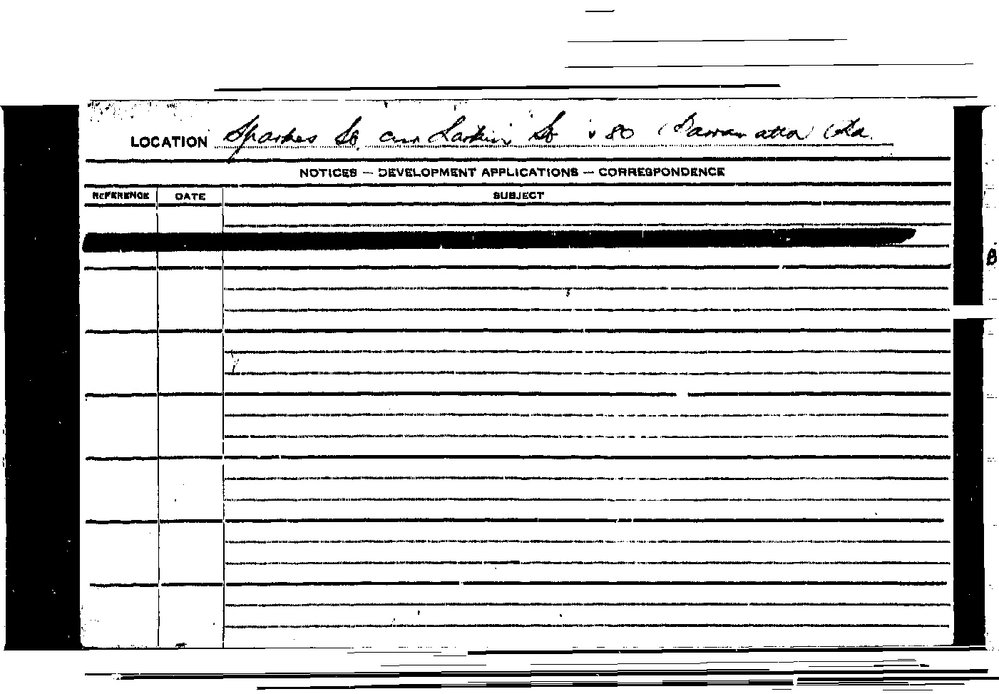 LOCATION Sparkes St cnr Larkin St & 80 Parramatta Rd.
NOTICES — DEVELOPMENT APPLICATIONS — CORRESPONDENCE
REFERENCE DATE SUBJECT